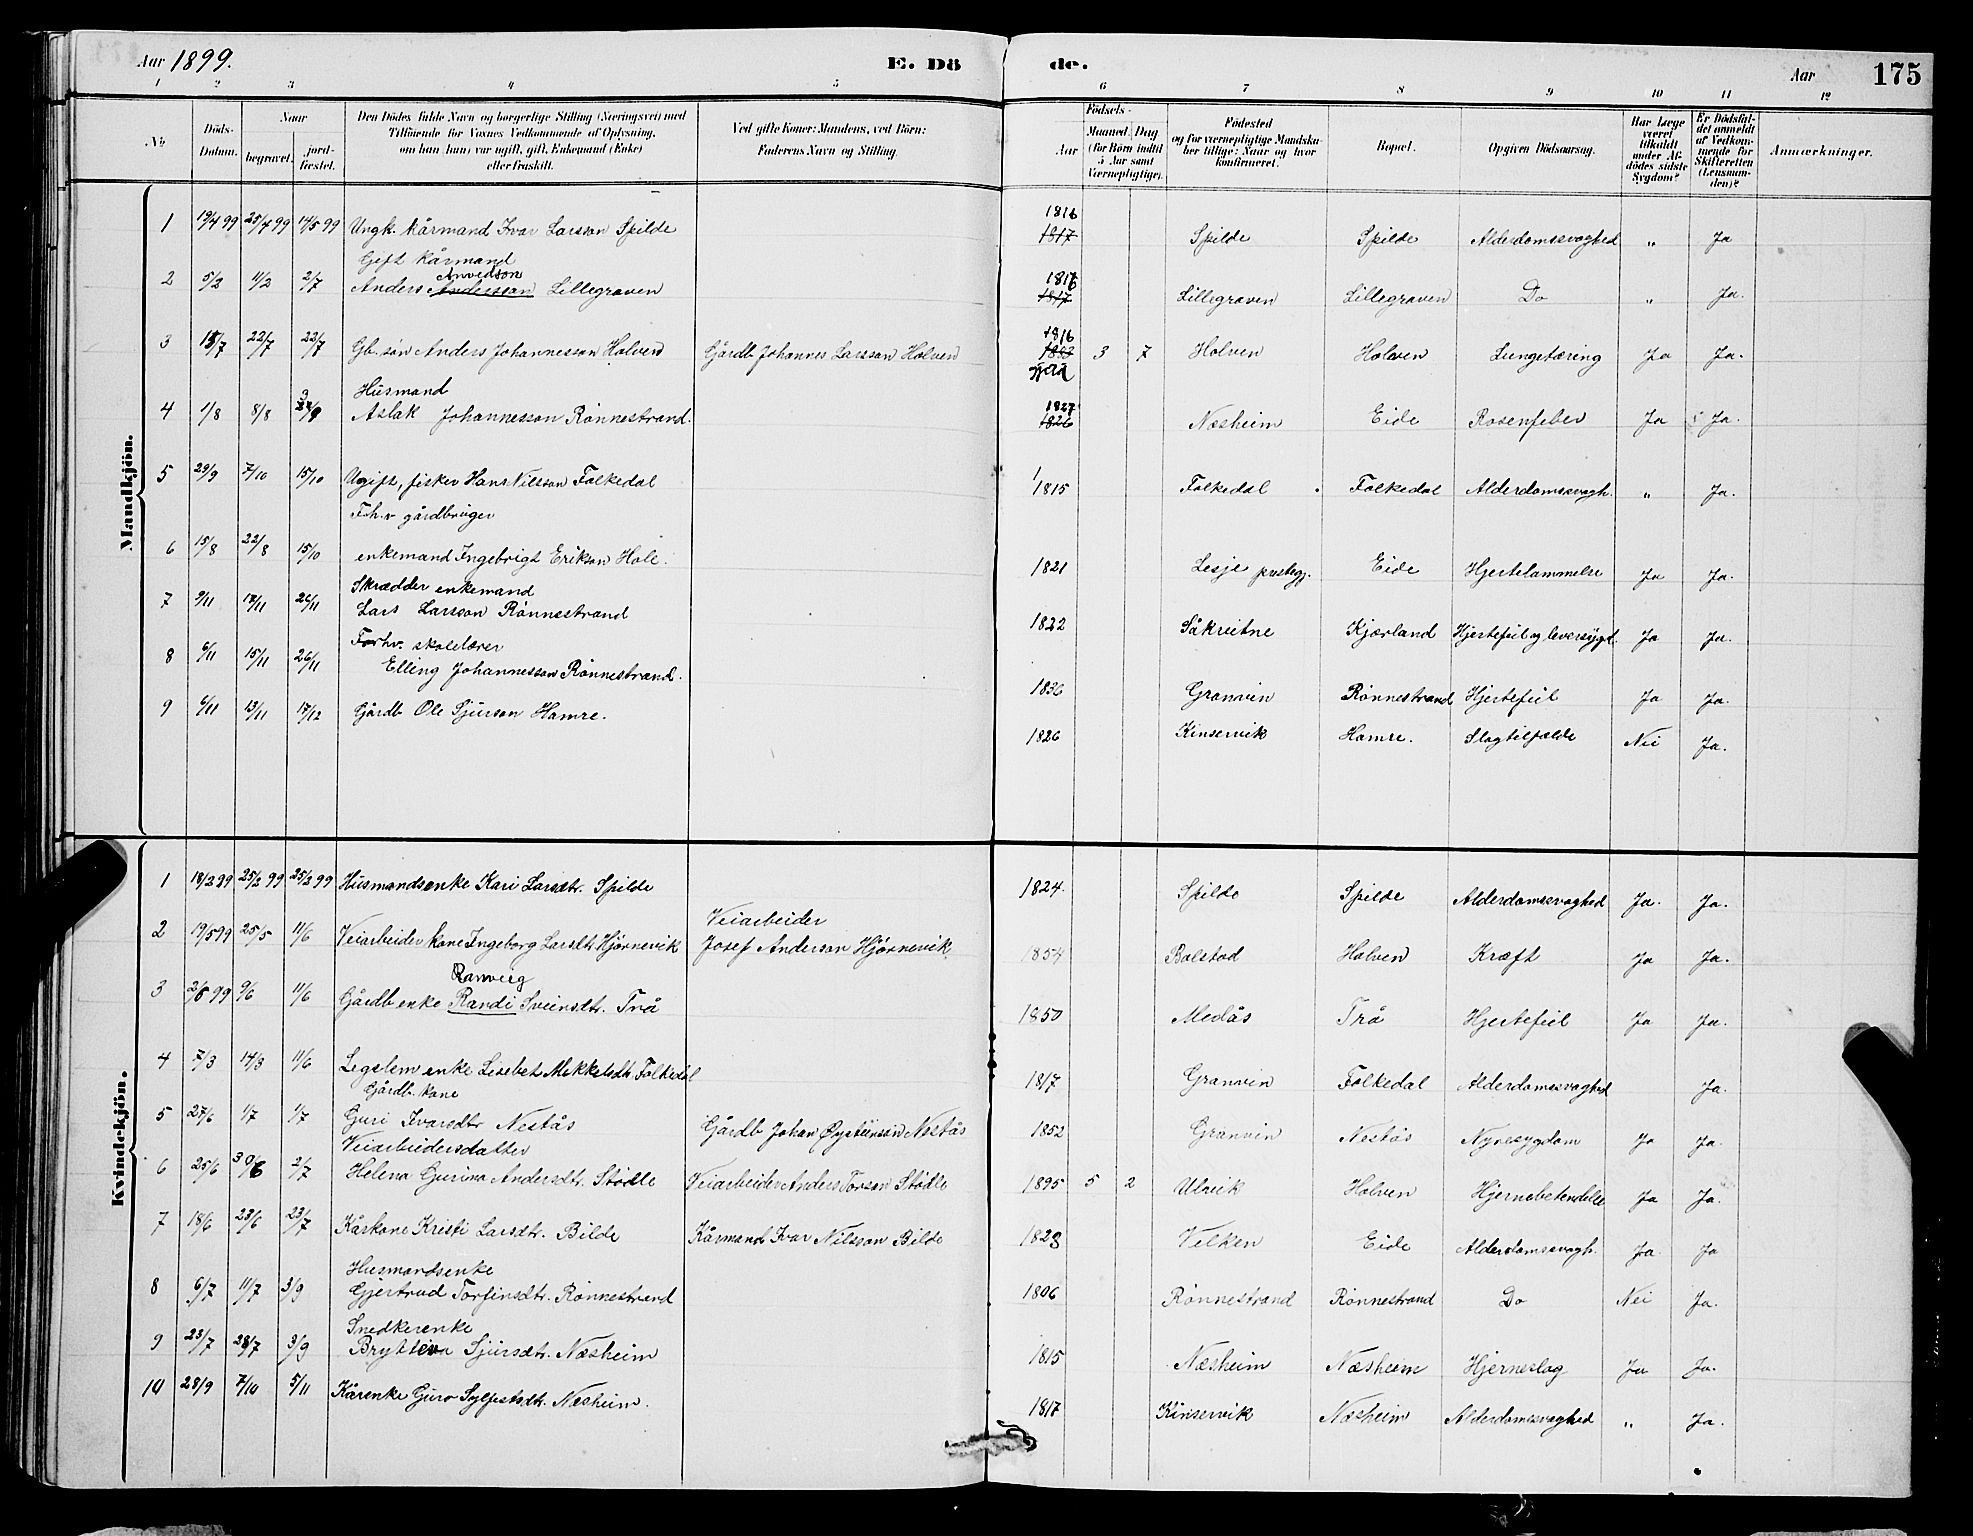 Aar 1899.
E. Dö
de.
Aar
175
1 2 3 4 5 6 7 8 9 10 11 12
No.
Döds-Datum.
Naar
begravet.
jordfæstet.
Den Dödes fulde Navn og borgerlige Stilling (Næringsvei) med
Tilföiende for Voxnes Vedkommende af Oplysning,
om han (hun) var ugift, gift, Enkemand (Enke)
eller fraskilt.
Ved gifte Koner: Mandens, ved Börn:
Faderens Navn og Stilling.
Födsels-
Aar
Maaned.
Dag
(for Börn indtil
5 Aar samt
Værnepligtige).
Födested
og for værnepligtige Mandska-
ber tillige: Naar og hvor
konfirmeret.
Bopæl.
Opgiven Dödsaarsag.
Har Læge
været
tilkaldt
under Af-
dödes sidste
Sygdom?
Er Dödsfal-
det anmeldt
af Vedkom-
mende for
Skifteretten
(Lensman-
den)?
Anmærkninger.
Mandkjön.
1 19/4 99 25/4 99 14/5 99 Ungk. kårmand Ivar Larsson Spilde 1816 1817 Spilde Spilde Alderdomssvaghed " Ja
Gift kårmand
Anvedson
2 5/2 11/2 2/7 Anders Andersson Lillegraven 1816 1817 Lillegraven Lillegraven Do " Ja.
3 15/7 22/7 22/7 Gb. søn Anders Johannesson Holven Gårdb Johannes Larsson Holven 1883 3 7 Holven Holven Lungetæring Ja Ja.
Husmand
4 1/8 8/8 Aslak Johannesson Rønnestrand. 1827 1826 Næsheim Eide Rosenfeber Ja Ja.
5 29/9 7/10 15/10 Ugift, fisker Hans Nilsson Folkedal 1815 Folkedal Folkedal Alderdomssvagh. " Ja.
Foh.v gårdbruger
6 15/8 22/8 15/10 enkemand Ingebrigt Erikson Hole. 1821 Lesje prestegj. Eide Hjertelammelse Ja Ja.
Skrædder enkemand
7 9/11 17/11 26/11 Lars Larsson Rønnestrand 1822 Såkvitne Kjærland Hjertefeil og leversygd. Ja Ja.
Forhv. skolelærer
8 6/11 15/11 26/11 Elling Johannesson Rønnestrand. 1836 Granvin Rønnestrand Hjertefeil Ja Ja.
9 6/11 13/11 17/12 Gårdb Ole Sjurson Hamre. 1826 Kinservik Hamre. Slagtilfælde Nei Ja.
Kvindekjön.
1 18/2 99 25/2 99 25/2 99 Husmandsenke Kari Larsdtr. Spilde 1824. Spilde Spilde Alderdomssvaghed Ja. Ja.
Veiarbeider
2 19/5 99 25/5 11/6 Veiarbeider kone Ingeborg Larsdtr Hjørnevik Josef Anderson Hjørnevik. 1854 Bolstad Holven Kræft Ja Ja.
Ranveig
3 2/6 99 9/6 11/6 Gårdb enke Randi Sveinsdtr. Trå 1850 Medås Trå Hjertefeil Ja Ja.
4 7/3 14/3 11/6 Legslem enke Lisebet Mikkelsdtr Folkedal 1817 Granvin Folkedal Alderdomssvaghed Ja.
Gårdb. kone
5 27/6 1/7 1/7 Guri Ivarsdtr Nestås Gårdb Johan Øysteinsøn Nestås 1852 Granvin Nestås Nyresygdom Ja Ja.
Veiarbeidersdatter
6 25/6 30/6 2/7 Helena Gurina Andersdtr. Stødle Veiarbeider Anders Torson Stødle 1895 5 2 Ulvik Holven Hjernebetendelse Ja Ja.
7 18/6 23/6 23/7 Kårkone Kristi Larsdtr. Bilde Kårmand Ivar Nilsson Bilde 1823 Velken Eide Alderdomssvagh. Ja. Ja
Husmandsenke
8 6/7 11/7 3/9 Gjertrud Torfinsdtr. Rønnestrand 1806 Rønnestrand Rønnestrand Do Nei Ja.
Snedkerenke
9 23/7 28/7 3/9 Bryteva Sjursdtr. Næsheim 1815 Næsheim Næsheim Hjerneslag Ja Ja.
10 28/9 7/10 5/11 Kårenke Guro Sylfestsdtr. Næsheim. 1817 Kinservik Næsheim Alderdomssvaghed " Ja.